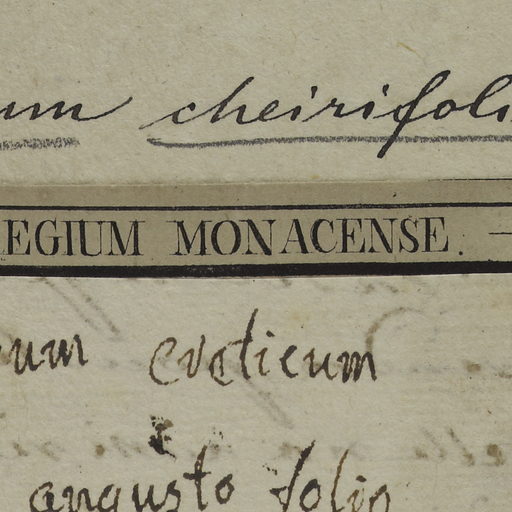 um cheirifoli
EGIUM MONACENSE. —
um creticum
angusto folio